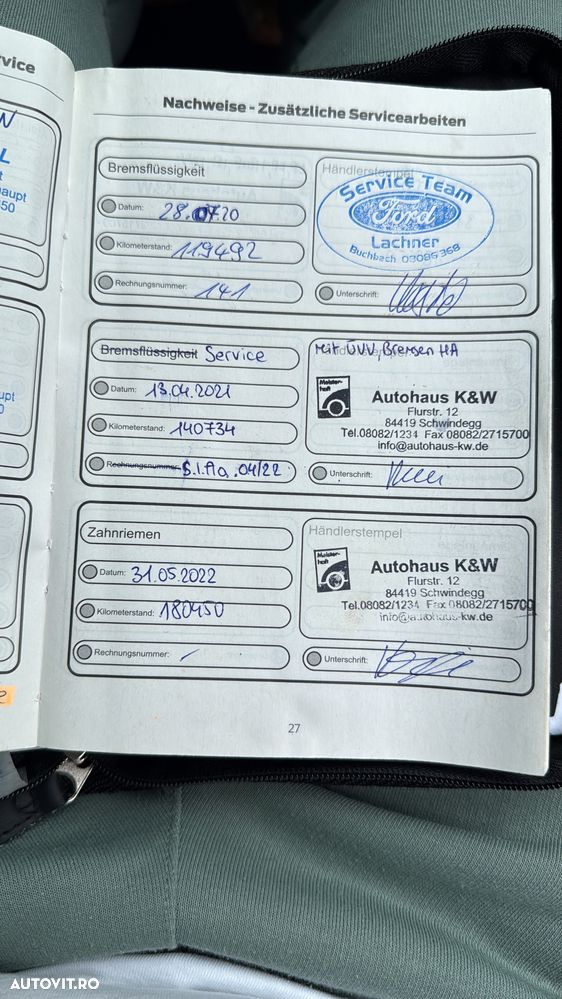 rvice
N
L
t
haupt
50
upt
0
e
Nachweise - Zusätzliche Servicearbeiten
Bremsflüssigkeit
Datum: 28.07.20
Kilometerstand: 119492
Rechnungsnummer: 141
Händlerstempel
Service Team
Ford
Lachner
Buchbach 03086 368
Unterschrift:
Bremsflüssigkeit Service
Datum: 13.04.2021
Kilometerstand: 140734
Rechnungsnummer: S.I.fla. 04/22
Mit ÜVV, Bremsen HA
Meister-
haft
Autohaus K&W
Flurstr. 12
84419 Schwindegg
Tel.08082/1234 Fax 08082/2715700
info@autohaus-kw.de
Unterschrift:
Zahnriemen
Datum: 31.05.2022
Kilometerstand: 180450
Rechnungsnummer: /
Händlerstempel
Meister-
haft
Autohaus K&W
Flurstr. 12
84419 Schwindegg
Tel.08082/1234 Fax 08082/2715700
info@autohaus-kw.de
Unterschrift:
27
AUTOVIT.RO